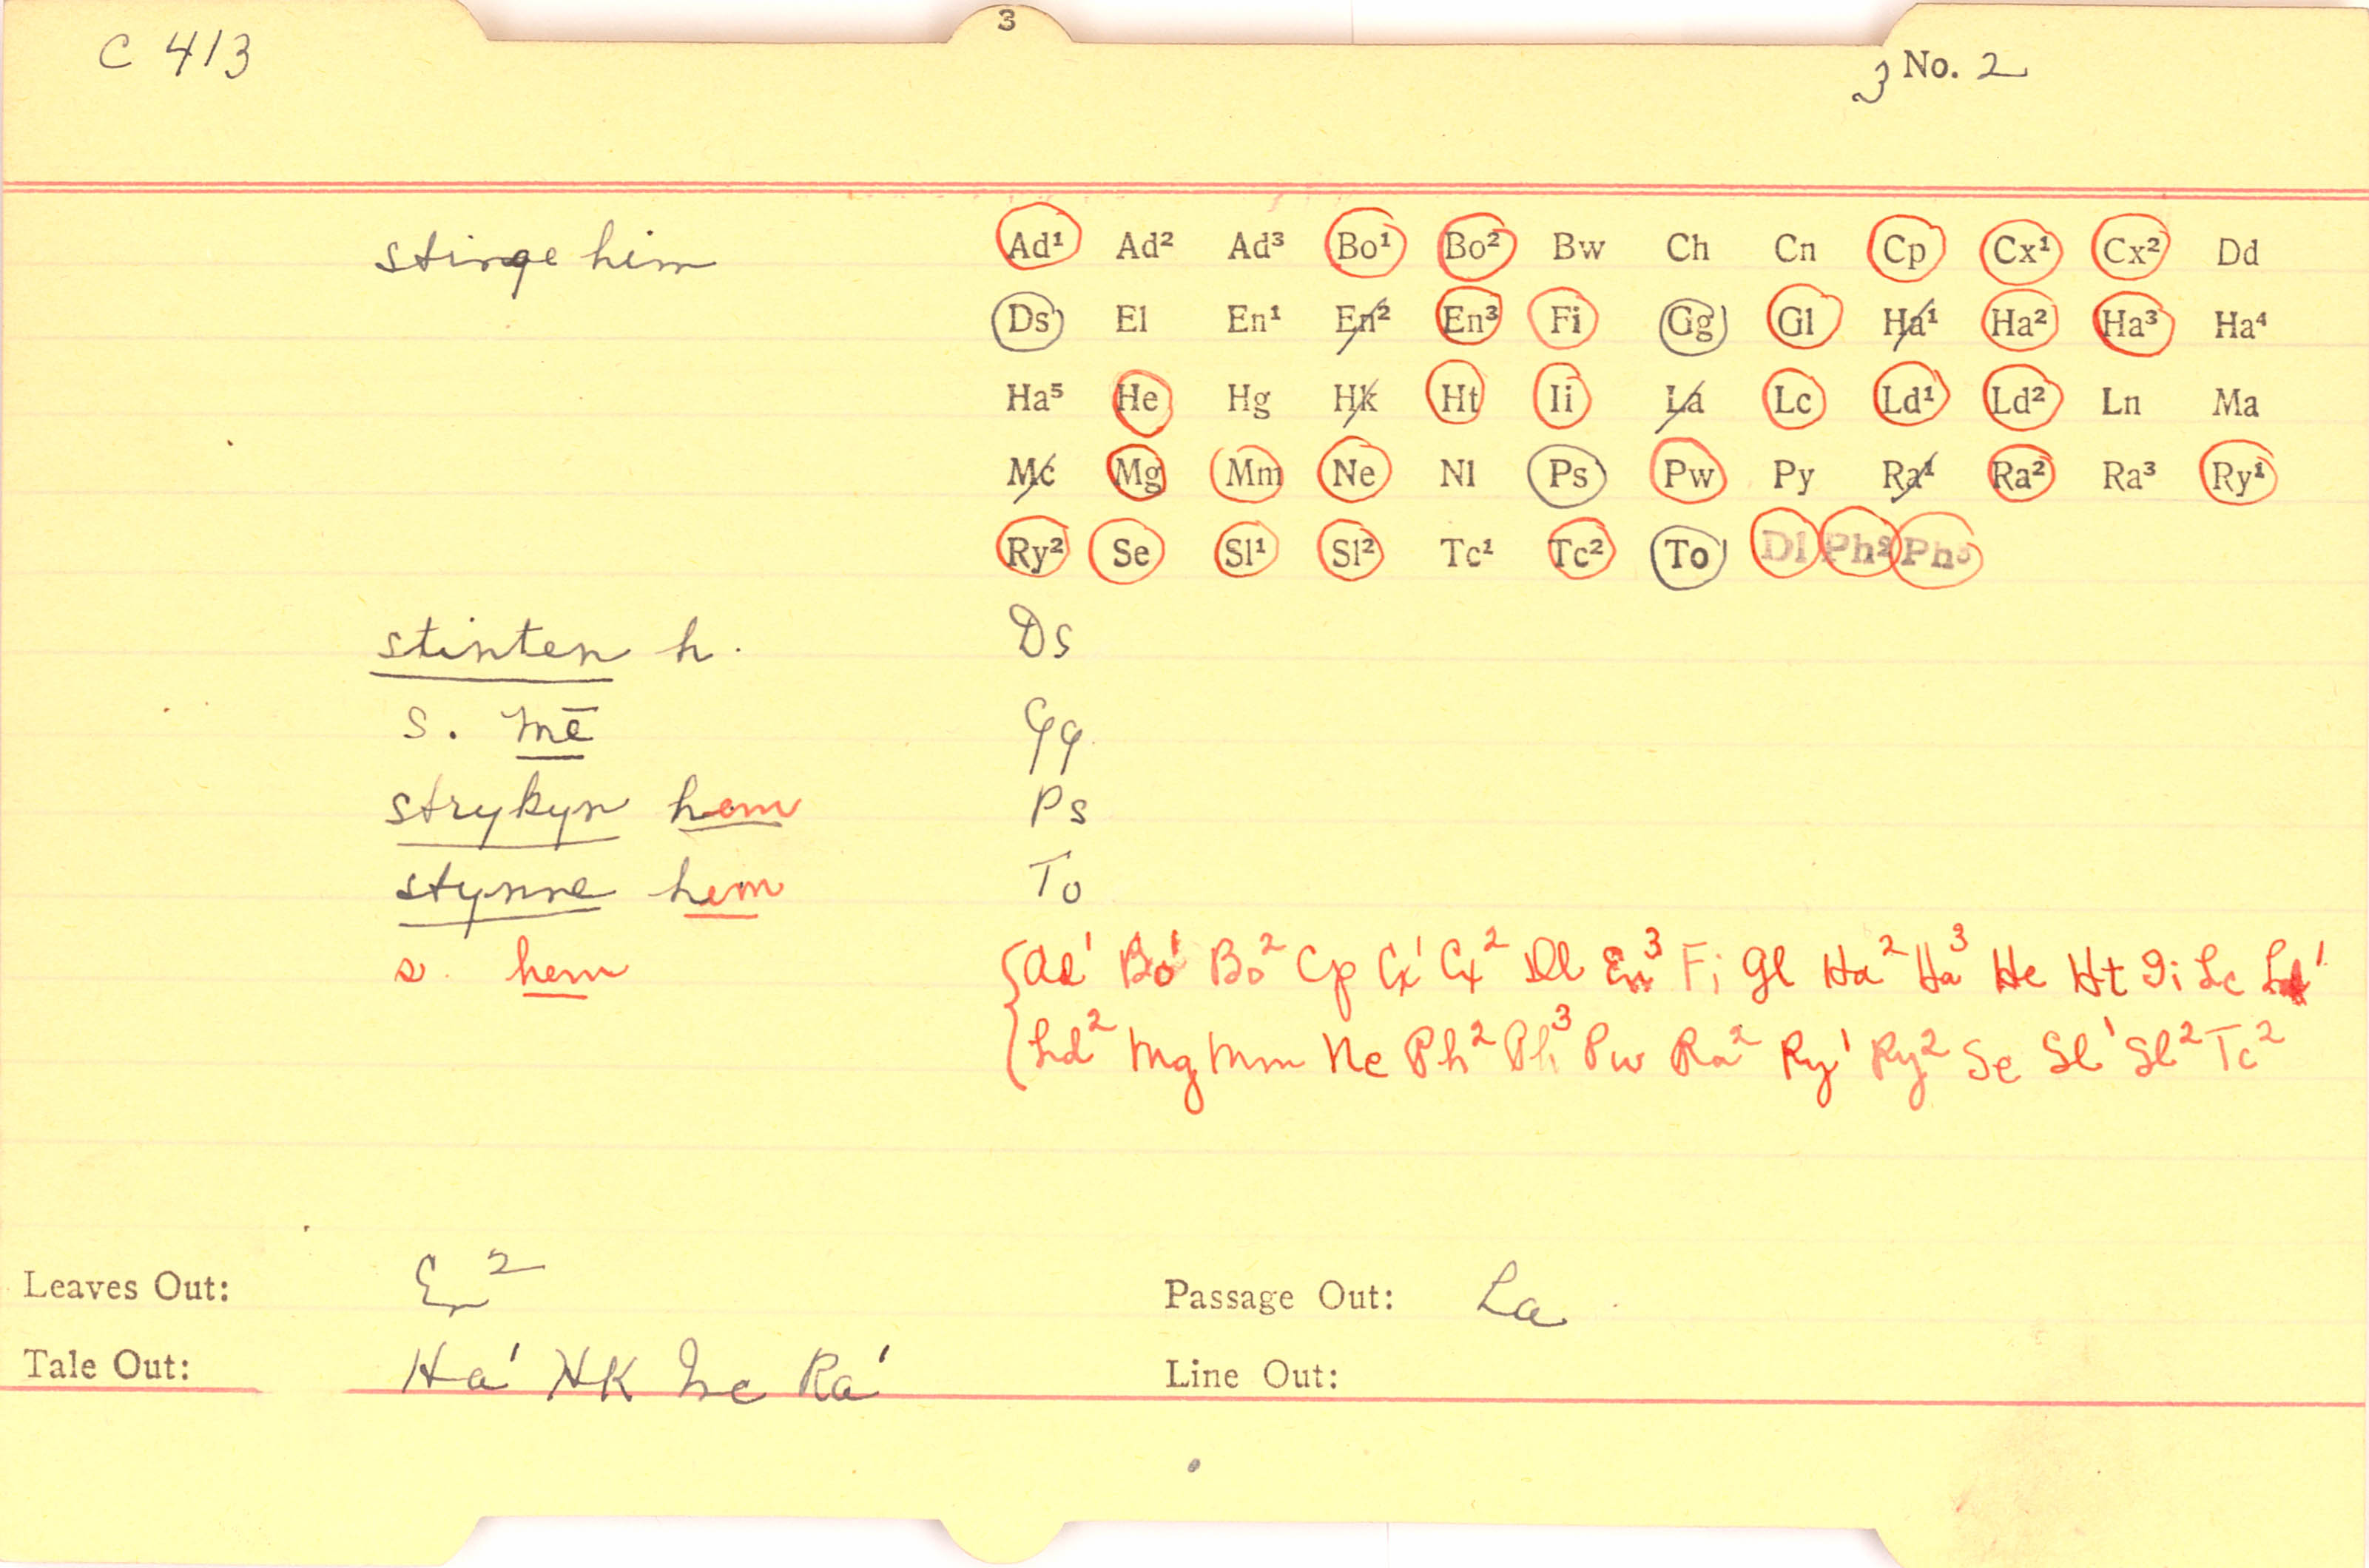 3
C 413
3 No. 2
stinge him
Ad¹ Ad² Ad³ Bo¹ Bo² Bw Ch Cn Cp Cx¹ Cx² Dd
Ds El En¹ En² En³ Fi Gg Gl Ha¹ Ha² Ha³ Ha⁴
Ha⁵ He Hg Hk Ht Ii La Lc Ld¹ Ld² Ln Ma
Mc Mg Mm Ne Nl Ps Pw Py Ra¹ Ra² Ra³ Ry¹
Ry² Se Sl¹ Sl² Tc¹ Tc² To Dl Ph² Ph³
stinten h. Ds
s. mē Gg
strykyn hem Ps
stynne hem To
s. hem {Ad¹ Bo¹ Bo² Cp Cx¹ Cx² Dl En³ Fi Gl Ha² Ha³ He Ht Ii Lc Ld¹
Ld² Mg Mm Ne Ph² Ph³ Pw Ra² Ry¹ Ry² Se Sl¹ Sl² Tc²
Leaves Out: En² Passage Out: La
Tale Out: Ha¹ Hk Mc Ra¹ Line Out: